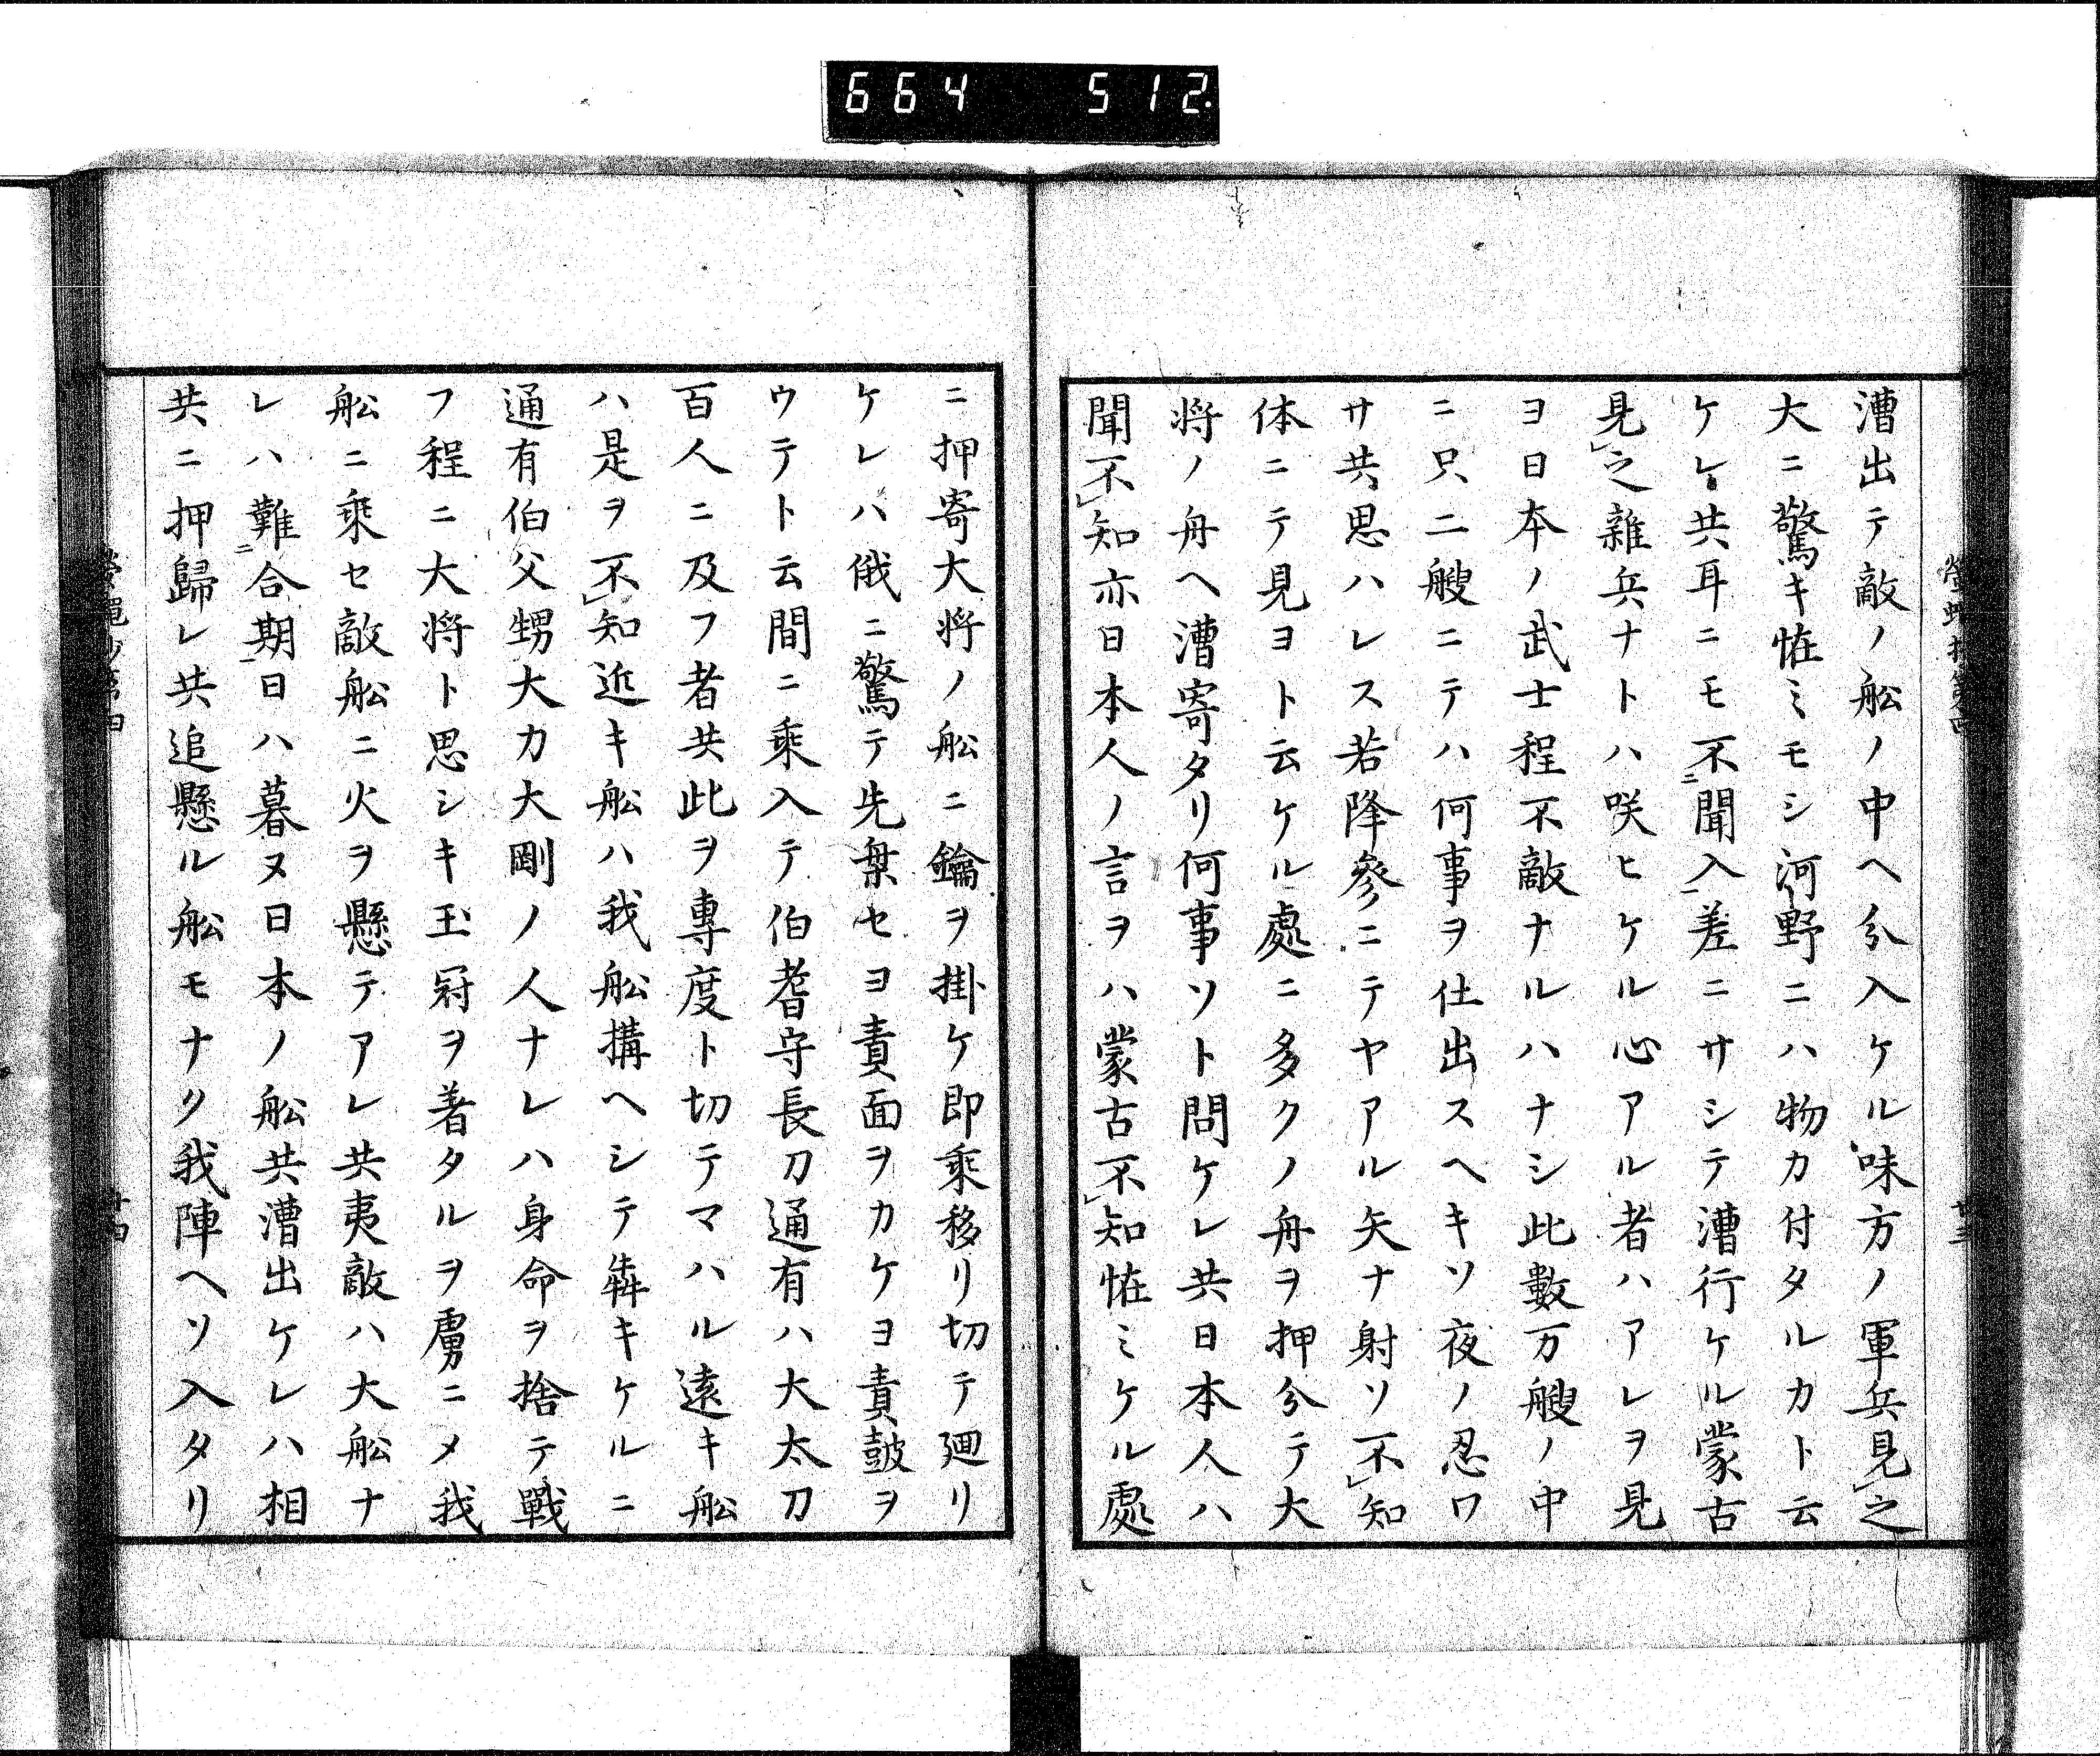 664 512.
漕出テ敵ノ舩ノ中ヘ分入ケル味方ノ軍兵見㆑之
大ニ驚キ恠ミモシ河野ニハ物カ付タルカト云
ケレ共耳ニモ不㆓聞入㆒差ニサシテ漕行ケル蒙古
見㆑之雜兵ナトハ咲ヒケル心アル者ハアレヲ見
ヨ日本ノ武士程不敵ナルハナシ此數万艘ノ中
ニ只二艘ニテハ何事ヲ仕出スヘキソ夜ノ忍ワ
サ共思ハレス若降參ニテヤアル矢ナ射ソ不㆑知
体ニテ見ヨト云ケル處ニ多クノ舟ヲ押分テ大
将ノ舟ヘ漕寄タリ何事ソト問ケレ共日本人ハ
聞不㆑知亦日本人ノ言ヲハ蒙古不㆑知恠ミケル處
ニ押寄大将ノ舩ニ鑰ヲ掛ケ即乘移リ切テ廻リ
ケレハ俄ニ驚テ先棄セヨ責面ヲカケヨ責鼓ヲ
ウテト云間ニ乘入テ伯耆守長刀通有ハ大太刀
百人ニ及フ者共此ヲ專度ト切テマハル遠キ舩
ハ是ヲ不㆑知近キ舩ハ我舩搆ヘシテ犇キケルニ
通有伯父甥大力大剛ノ人ナレハ身命ヲ捨テ戰
フ程ニ大将ト思シキ玉冠ヲ著タルヲ虜ニメ我
舩ニ乘セ敵舩ニ火ヲ懸テアレ共夷敵ハ大舩ナ
レハ難㆓合期㆒日ハ暮ヌ日本ノ舩共漕出ケレハ相
共ニ押歸レ共追懸ル舩モナク我陣ヘソ入タリ